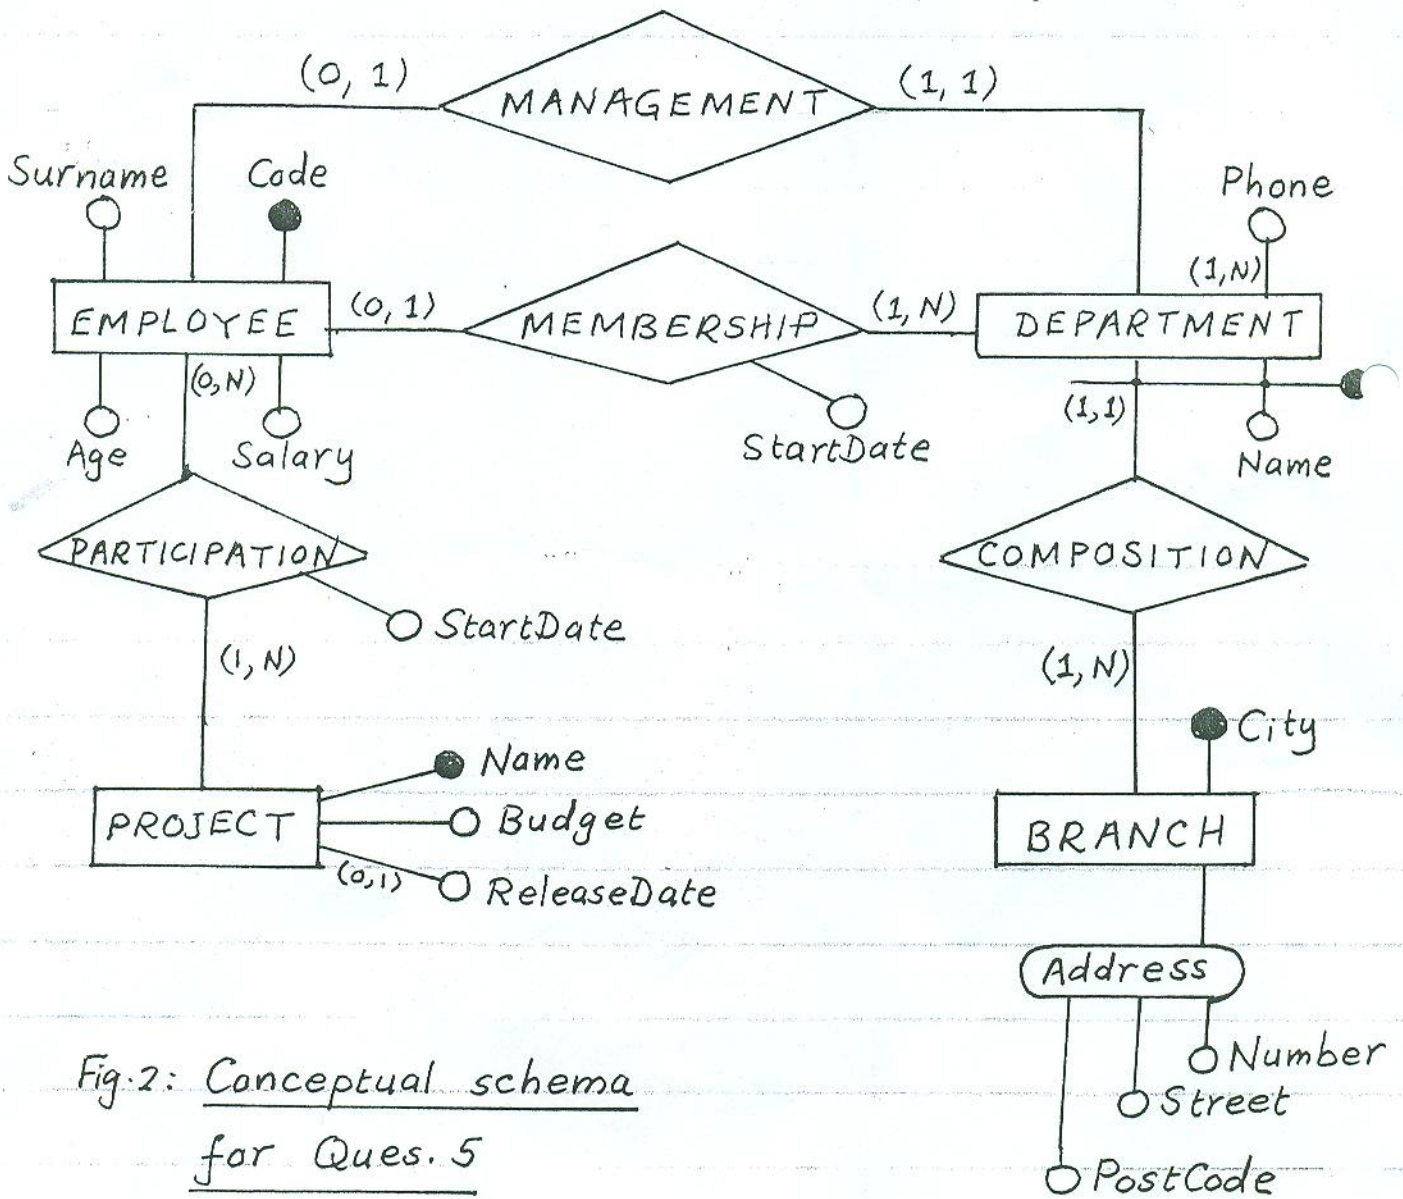 (0, 1)
MANAGEMENT
(1, 1)
Surname
Code
Phone
(1,N)
EMPLOYEE
(0, 1)
MEMBERSHIP
(1, N)
DEPARTMENT
(0,N)
(1,1)
Age
Salary
StartDate
Name
PARTICIPATION
COMPOSITION
StartDate
(1, N)
(1, N)
City
Name
PROJECT
Budget
BRANCH
(0,1)
ReleaseDate
Address
Number
Street
PostCode
Fig.2: Conceptual schema
for Ques. 5